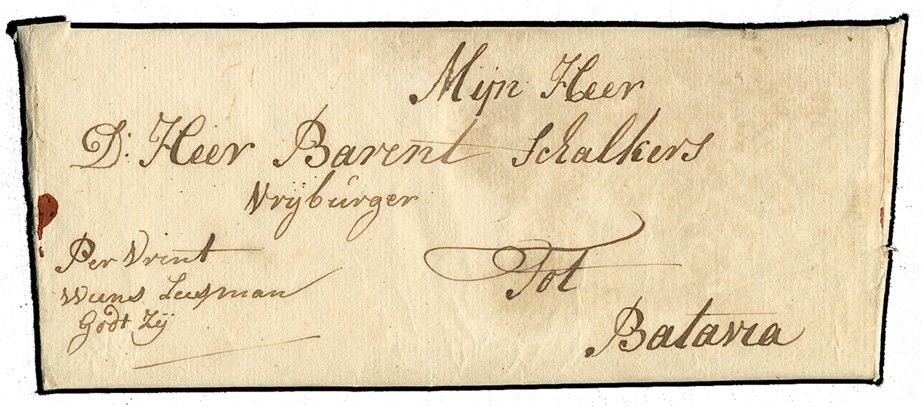 Mijn Heer
D: Heer Barent Schalkers
Vrijburger
Per Vrint
Wiens Leefman
Godt Zij
Tot
Batavia